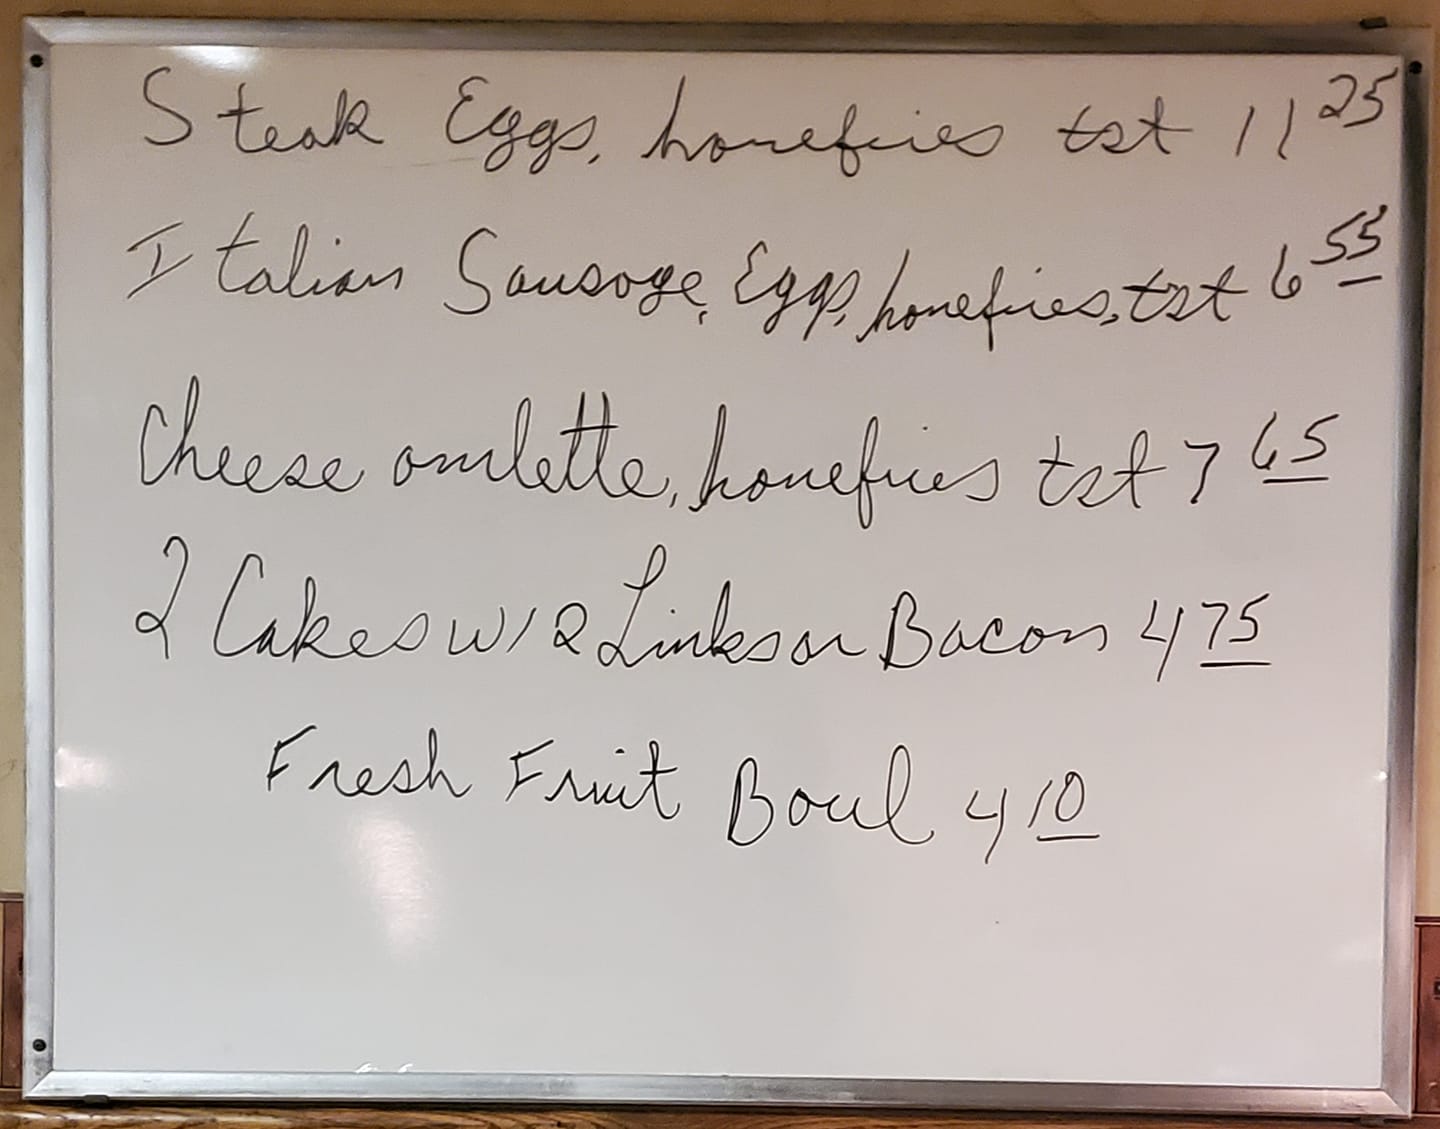 Steak Eggs, homefries tst 11 25
Italian Sausage, Eggs, homefries, tst 6 55
Cheese omlette, homefries tst 7 65
2 Cakes w/ 2 Links or Bacon 4 75
Fresh Fruit Bowl 4 10